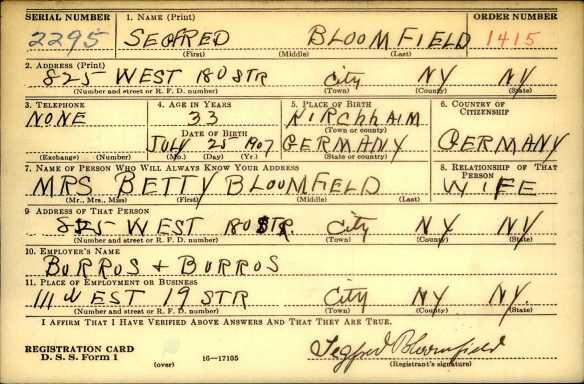 SERIAL NUMBER 1. NAME (Print) ORDER NUMBER
2295 SEGFRED BLOOMFIELD 1415
(First) (Middle) (Last)
2. ADDRESS (Print)
825 WEST 180 STR City NY NY
(Number and street or R. F. D. number) (Town) (County) (State)
3. TELEPHONE 4. AGE IN YEARS 5. PLACE OF BIRTH 6. COUNTRY OF CITIZENSHIP
NONE 33 KIRCHHAIM
(Town or county)
DATE OF BIRTH
JULY 25 1907 GERMANY GERMANY
(Exchange) (Number) (Mo.) (Day) (Yr.) (State or country)
7. NAME OF PERSON WHO WILL ALWAYS KNOW YOUR ADDRESS 8. RELATIONSHIP OF THAT PERSON
MRS BETTY BLOUMFIELD WIFE
(Mr., Mrs., Miss) (First) (Middle) (Last)
9. ADDRESS OF THAT PERSON
825 WEST 180 STR. City NY NY
(Number and street or R. F. D. number) (Town) (County) (State)
10. EMPLOYER'S NAME
BURROS + BURROS
11. PLACE OF EMPLOYMENT OR BUSINESS
111 WEST 19 STR City NY NY.
(Number and street or R. F. D. number) (Town) (County) (State)
I AFFIRM THAT I HAVE VERIFIED ABOVE ANSWERS AND THAT THEY ARE TRUE.
REGISTRATION CARD
D. S. S. Form 1 (over) 16—17105 Segfred Bloomfield
(Registrant's signature)